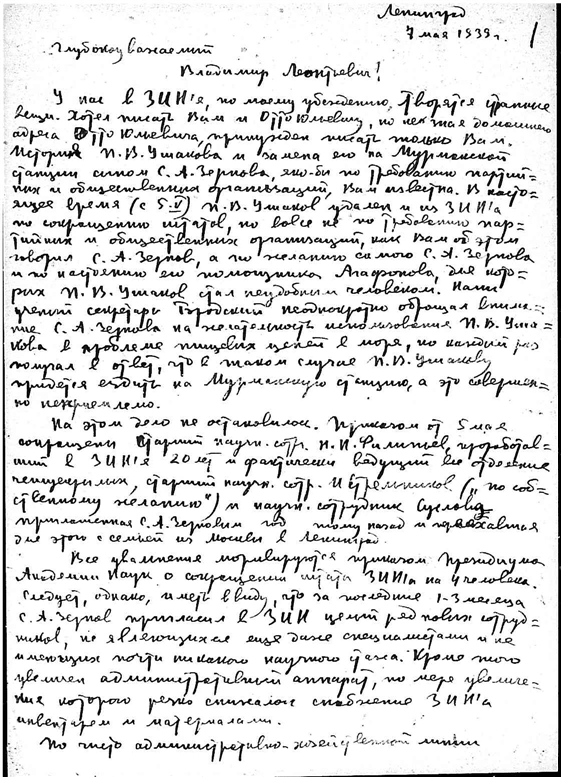 Ленинград
7 мая 1939 г. 1
Глубокоуважаемый
Владимир Леонтьевич!
У нас в ЗИН'е, по моему убеждению, творятся странные
вещи. Хотел писать Вам и Отто Юльевичу, но не зная домашнего
адреса Отто Юльевича, принужден писать только Вам.
История П.В. Ушакова и замена его на Мурманской
станции сыном С.А. Зернова, яко-бы по требованию партий=
ных и общественных организаций, Вам известна. В насто=
ящее время (с 5.V) П.В. Ушаков удален и из ЗИН'а
по сокращению штатов, но вовсе не по требованию пар=
тийных и общественных организаций, как Вам об этом
говорил С.А. Зернов, а по желанию самого С.А. Зернова
и по настоянию его помощника Агафонова, для кото=
рых П.В. Ушаков стал неудобным человеком. Наш
ученый секретарь Городский неоднократно обращал внима=
ние С.А. Зернова на желательность использования П.В. Уша=
кова в проблеме пищевых цепей в море, но каждый раз
получал в ответ, что в таком случае П.В. Ушакову
придется ездить на Мурманскую станцию, а это совершен=
но неприемлемо.
На этом дело не остановилось. Приказом от 5 мая
сокращены старший научн. сотр. И.Н. Филипьев, проработав=
ший в ЗИН'е 20 лет и фактически ведущий все отделение
, старший научн. сотр. И. Стрельников („по соб=
ственному желанию") и научн. сотрудник
приглашенная С.А. Зерновым год тому назад и переехавшая
для этого с семьей из Москвы в Ленинград.
Все увольнения мотивируются приказом Президиума
Академии Наук о сокращении штата ЗИН'а на 4 человека.
Следует, однако, иметь в виду, что за последние 1-3 месяца
С.А. Зернов пригласил в ЗИН целый ряд новых сотруд=
ников, не являющихся еще даже специалистами и не
имеющих почти никакого научного стажа. Кроме того
увеличен административный аппарат, по мере увеличе=
ния которого резко снижалось снабжение ЗИН'а
инвентарем и материалами.
По чисто административно-хозяйственной линии